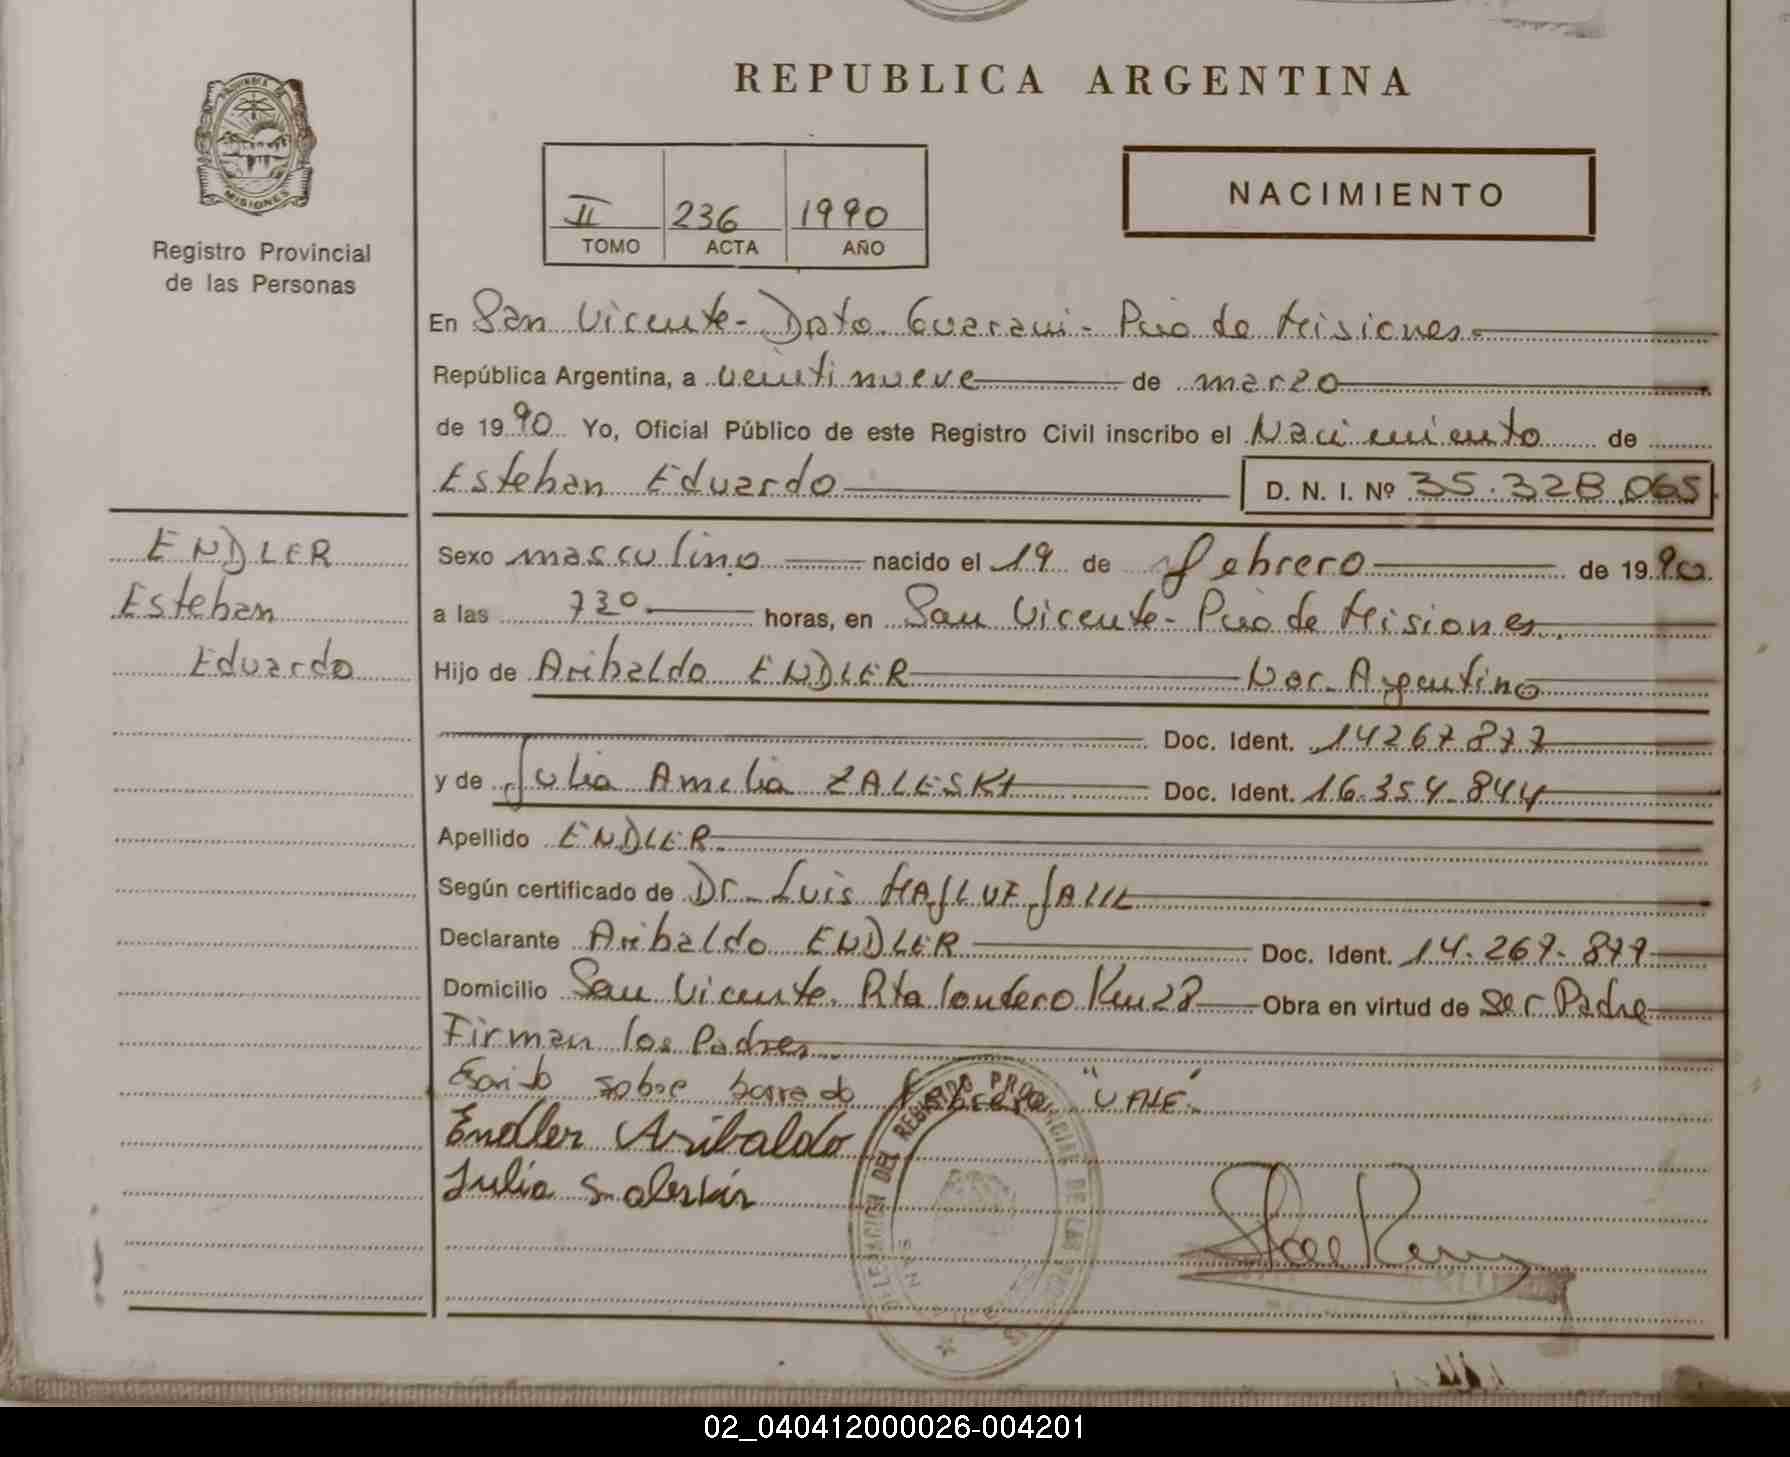 REPUBLICA ARGENTINA
PROVINCIA DE
MISIONES
Registro Provincial
de las Personas
II 236 1990
TOMO ACTA AÑO
NACIMIENTO
En San Vicente - Dpto. Guarani - Pcia de Misiones.
República Argentina, a veintinueve de marzo
de 1990 Yo, Oficial Público de este Registro Civil inscribo el Nacimiento de
Esteban Eduardo D. N. I. Nº 35.328.065
ENDLER
Esteban
Eduardo
Sexo masculino nacido el 19 de febrero de 1990.
a las 730 horas, en San Vicente - Pcia de Misiones.
Hijo de Aribaldo ENDLER Nac. Argentino
Doc. Ident. 14267877
y de Julia Amelia ZALESKI Doc. Ident. 16.354.844
Apellido ENDLER
Según certificado de Dr. Luis MASLUF JALIL
Declarante Aribaldo ENDLER Doc. Ident. 14.267.877
Domicilio San Vicente. Rta Londero Km 28 Obra en virtud de ser Padre
Firman los Padres.
Escrito sobre borrado febrero "VALE".
Endler Aribaldo
Julia
DELEGACION DEL REGISTRO PROVINCIAL DE LAS
SAN
02_040412000026-004201